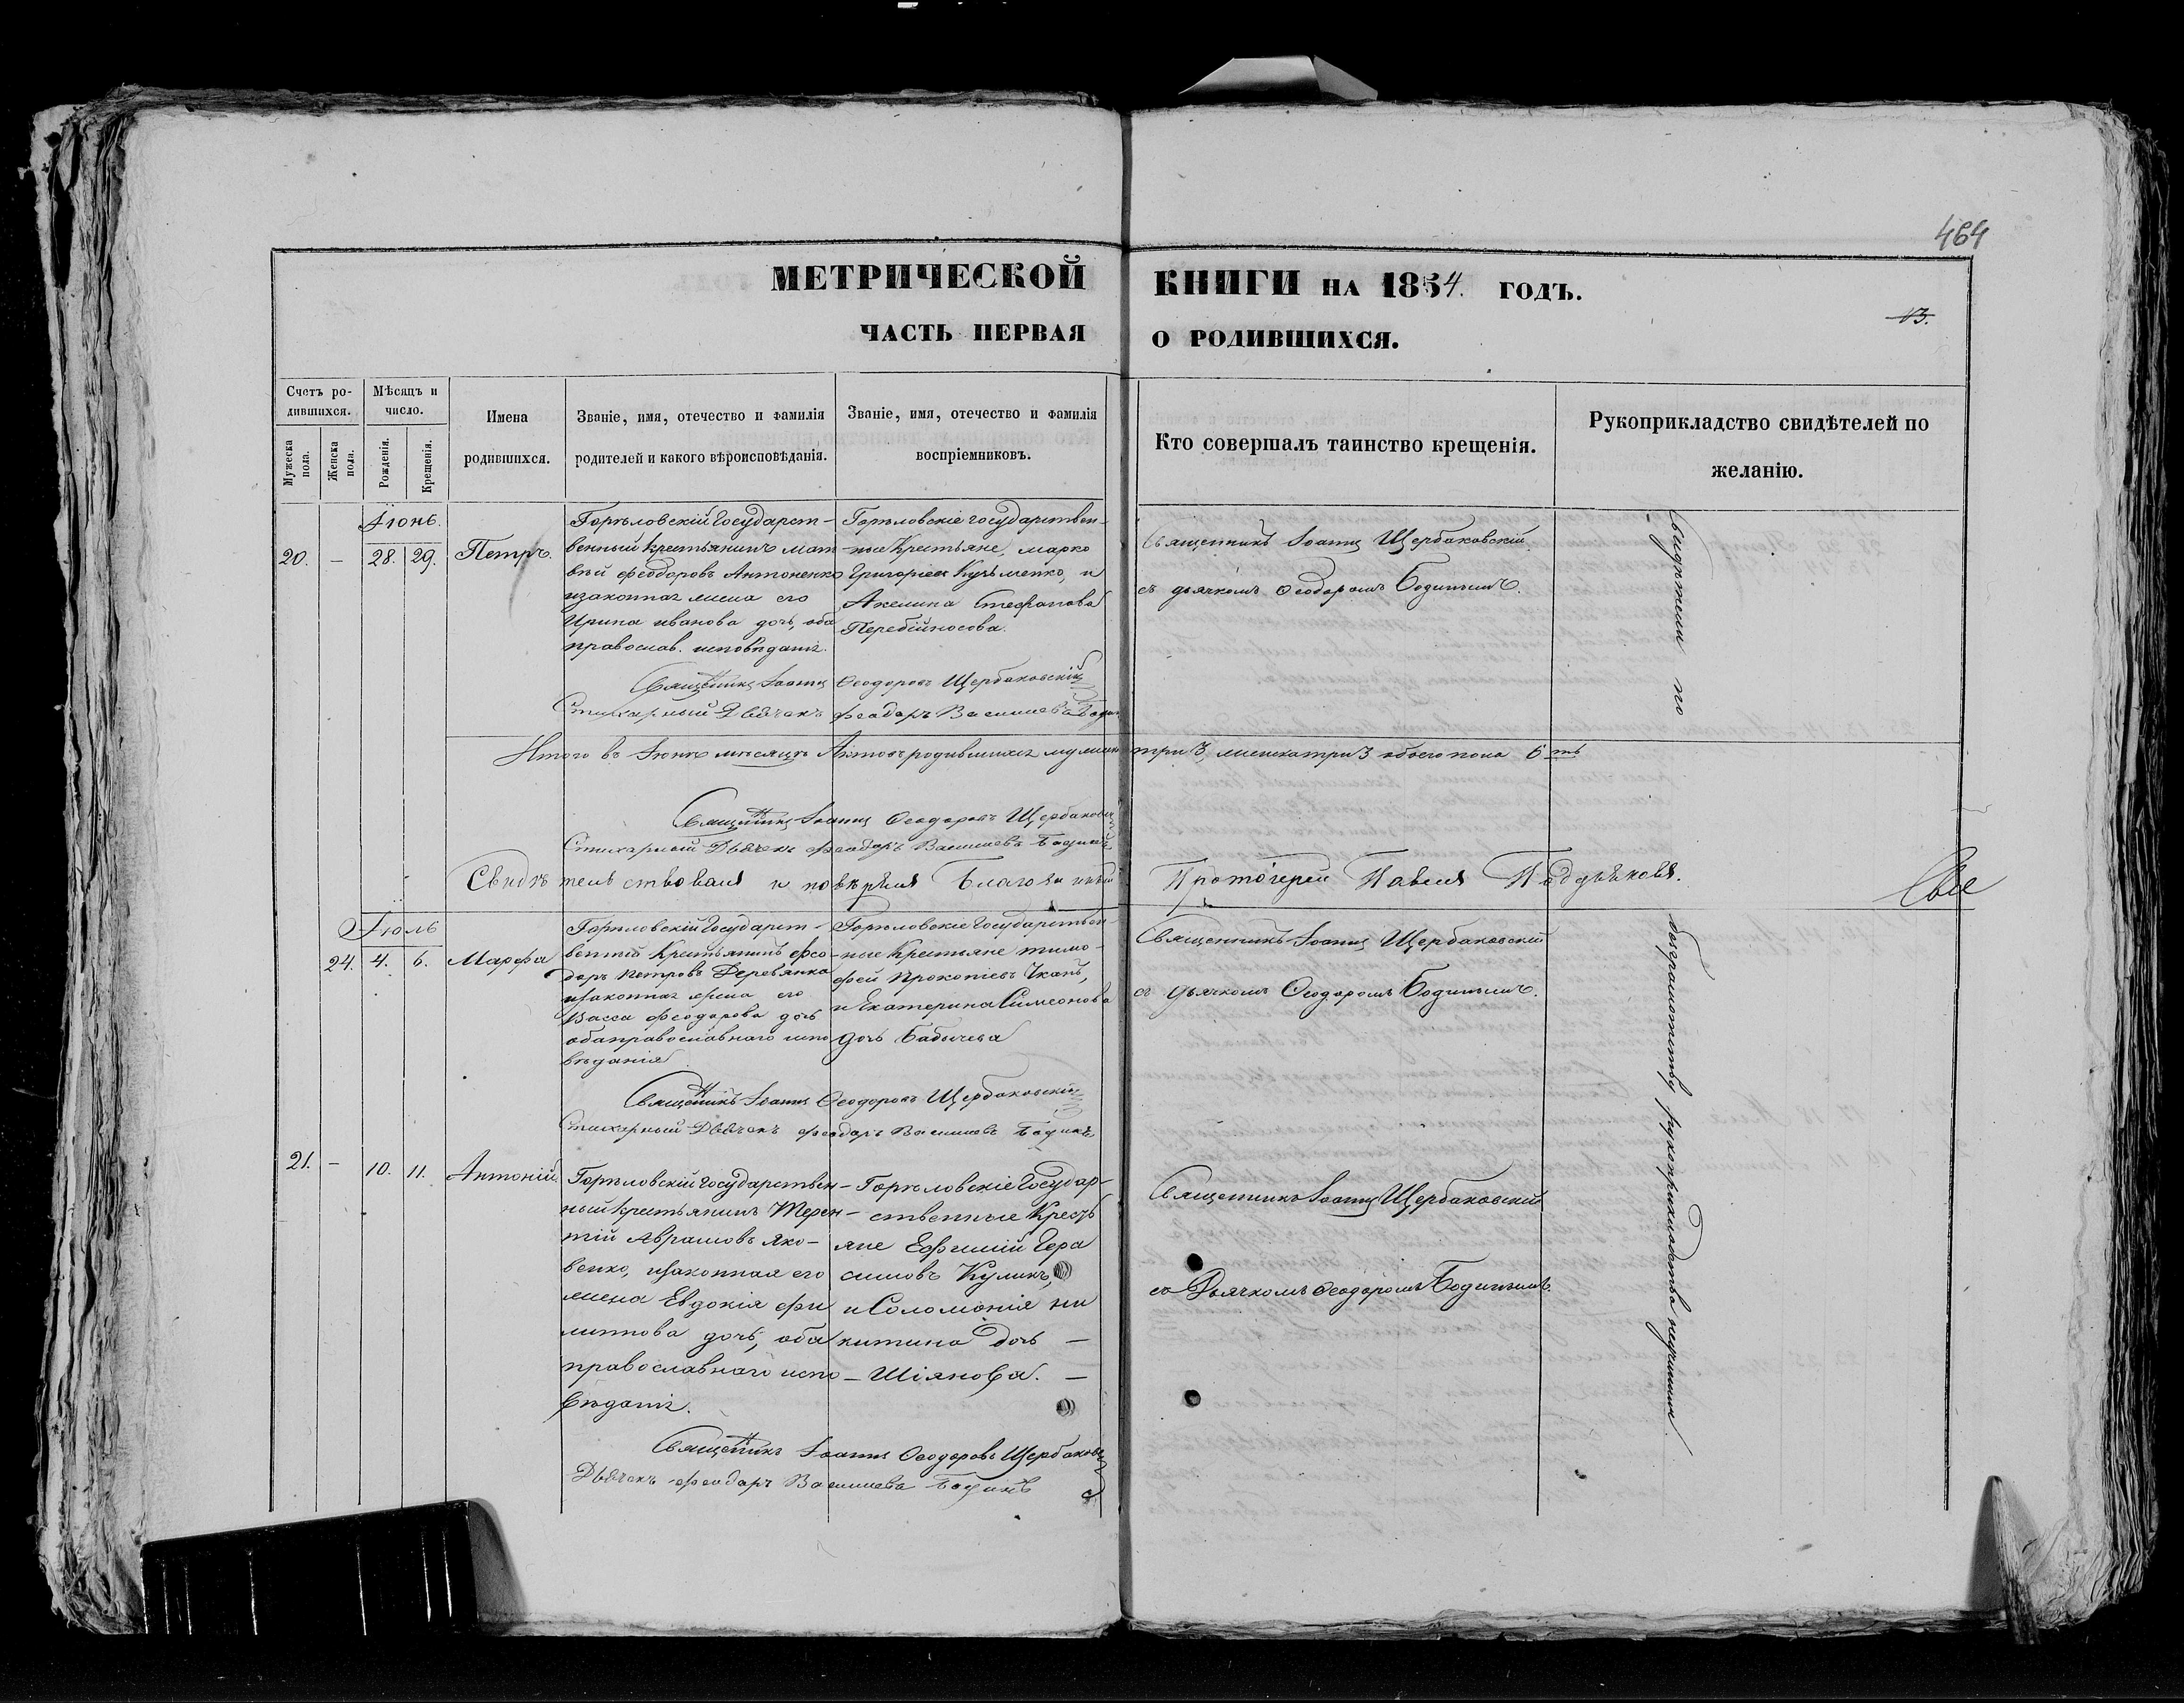 464
МЕТРИЧЕСКОЙ КНИГИ НА 1854. ГОДЪ.
13.
ЧАСТЬ ПЕРВАЯ О РОДИВШИХСЯ.
Счетъ ро-
дившихся.
Мужеска пола.
Женска пола.
Мѣсяцъ и
число.
Рожденія.
Крещенія.
Имена
родившихся.
Званіе, имя, отечество и фамилія
родителей и какого вѣроисповѣданія.
Званіе, имя, отечество и фамилія
воспріемниковъ.
Кто совершалъ таинство крещенія.
Рукоприкладство свидѣтелей по
желанію.
Іюнь.
20. — 28. 29. Петръ.
Горѣловскій Государст-
венный крестьянинъ мат
вѣй феодоровъ Антоненко
изаконная жена его
Ирина иванова дочь, оба
православ. исповѣданія.
Горѣловскіе государствен-
ные Крестьяне, марко
Григоріевъ Кузьменко, и
Акелина Стефанова
Перебійносова.
Священникъ Іоаннъ Щербаковскій
съ дьячкомъ Феодоромъ Бодинымъ.
Священникъ Іоаннъ Феодоровъ Щербаковскій
Стихарный Дьячекъ феодоръ Васильевъ
Итого въ Іюнѣ мѣсяцѣ родившихся три 3, женска три 3 обоего пола 6ть
Священникъ Іоаннъ Феодоровъ Щербаковскій
Стихарный Дьячекъ феодоръ Васильевъ Бодинъ
Свидѣтельствовалъ и повѣрялъ Благочинный Протоіерей Павелъ Поддубковъ.
Іюль
24. 4. 6. Марфа
Горѣловскій Государст-
венный Крестьянинъ фео
доръ петровъ Деревянка
изаконная жена его
Васса феодорова дочь
обаправославнаго испо
вѣданія
Горѣловскіе Государствен-
ные Крестьяне тимо-
фей Прокопіевъ Ткачь,
и Екатерина Симеонова
дочь Бабычева
Священникъ Іоаннъ Щербаковскій
съ дьячкомъ Феодоромъ Бодинымъ.
Священникъ Іоаннъ Феодоровъ Щербаковскій
Стихарный Дьячекъ феодоръ Васильевъ Бодинъ
21. — 10. 11. Антоній.
Горѣловскій Государствен-
ный крестьянинъ Терен-
тій Аврамовъ Яко-
венко, изаконная его
жена Евдокія фи
липпова дочь, оба
православнаго испо
вѣданія.
Горѣловскіе Государ-
ственные Кресть
яне Ефимій Гера
симовъ Куликъ,
и Соломонія ни
китина дочь —
Шіянова. —
Священникъ Іоаннъ Щербаковскій
съ Дьячкомъ Феодоромъ Бодинымъ.
Священникъ Іоаннъ Феодоровъ Щербаковскій
Дьячекъ феодоръ Васильевъ Бодинъ
Свидѣтели по
безграмотству рукоприкладства неучинили